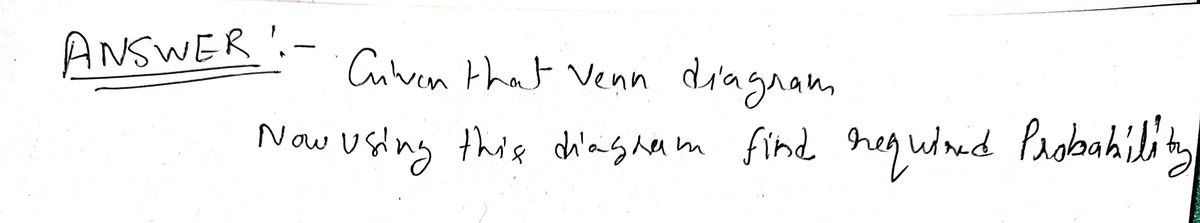 ANSWER :-
Given that Venn diagram
Now using this diagram find required Probability